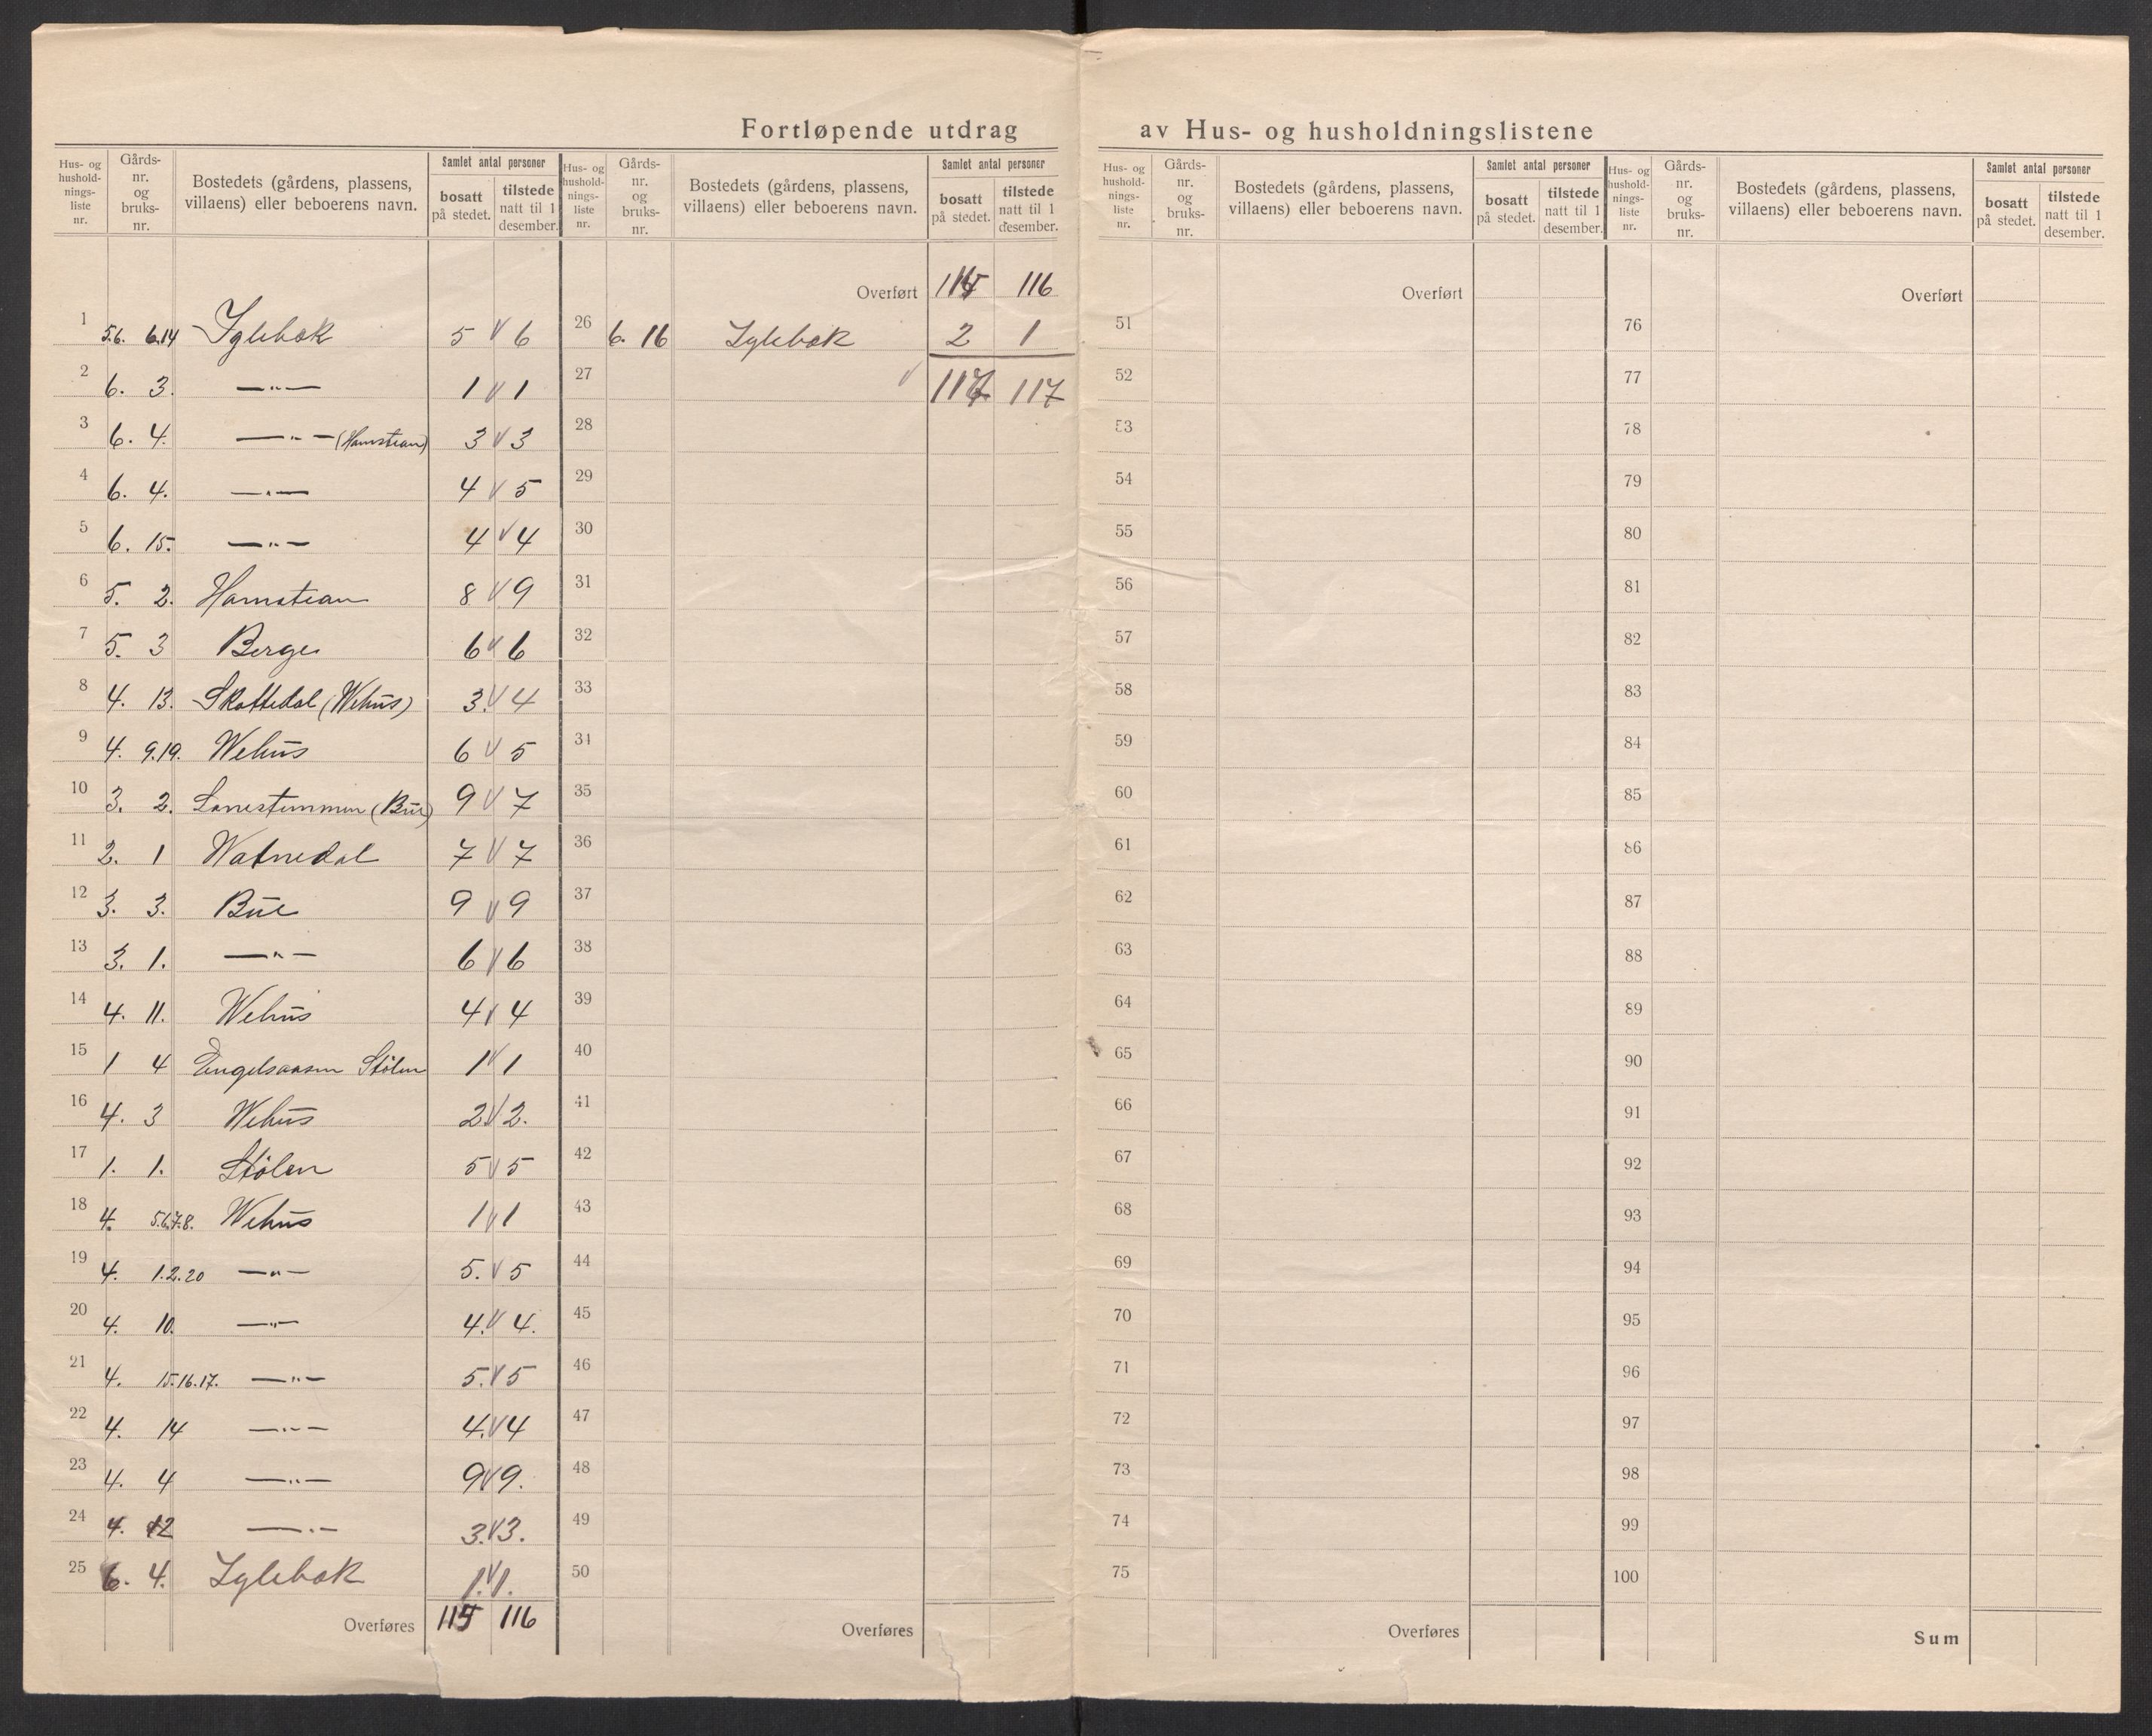 Fortløpende utdrag av Hus- og husholdningslistene
Hus- og husholdningsliste nr. | Gårds-nr. og bruks-nr. | Bostedets (gårdens, plassens, villaens) eller beboerens navn. | Samlet antal personer | bosatt på stedet. | tilstede natt til 1 desember.
1 5.6. 6.14 Iglebæk 5 V 6
2 6. 3. —"— 1 V 1
3 6. 4. —"— (Hamstean) 3 V 3
4 6. 4. —"— 4 V 5
5 6. 15. —"— 4 V 4
6 5. 2. Hamstean 8 V 9
7 5. 3 Berge 6 V 6
8 4. 13. Skattedal (Wehus) 3. V 4
9 4. 9.19. Wehus 6 V 5
10 3. 2. (Bue) 9 V 7
11 2. 1 Watnedal 7 V 7
12 3. 3. Bue 9 V 9
13 3. 1. —"— 6 V 6
14 4. 11. Wehus 4 V 4
15 1 4 Engelsaasen Stölen 1 V 1
16 4. 3 Wehus 2 V 2.
17 1. 1. Stölen 5 V 5
18 4. 5.6.7.8. Wehus 1 V 1
19 4. 1.2.20 —"— 5. V 5
20 4. 10. —"— 4. V 4.
21 4. 15.16.17. —"— 5. V 5
22 4. 14 —"— 4. V 4
23 4. 4 —"— 9 V 9.
24 4. 12 —"— 3. V 3.
25 6. 4. Iglebæk 1. V 1.
Overføres 115 116
Hus- og husholdningsliste nr. | Gårds-nr. og bruks-nr. | Bostedets (gårdens, plassens, villaens) eller beboerens navn. | Samlet antal personer | bosatt på stedet. | tilstede natt til 1 desember.
Overført 115 116
26 6. 16 Iglebæk 2 1
27 V 117 117
28
29
30
31
32
33
34
35
36
37
38
39
40
41
42
43
44
45
46
47
48
49
50
Overføres
Hus- og husholdningsliste nr. | Gårds-nr. og bruks-nr. | Bostedets (gårdens, plassens, villaens) eller beboerens navn. | Samlet antal personer | bosatt på stedet. | tilstede natt til 1 desember.
Overført
51
52
53
54
55
56
57
58
59
60
61
62
63
64
65
66
67
68
69
70
71
72
73
74
75
Overføres
Hus- og husholdningsliste nr. | Gårds-nr. og bruks-nr. | Bostedets (gårdens, plassens, villaens) eller beboerens navn. | Samlet antal personer | bosatt på stedet. | tilstede natt til 1 desember.
Overført
76
77
78
79
80
81
82
83
84
85
86
87
88
89
90
91
92
93
94
95
96
97
98
99
100
Sum